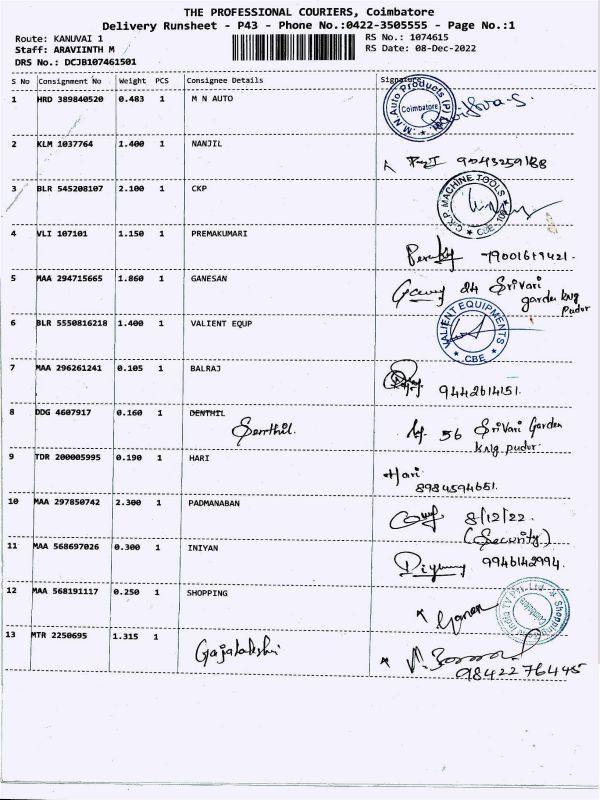 THE PROFESSIONAL COURIERS, Coimbatore
Delivery Runsheet - P43 - Phone No.:0422-3505555 - Page No.:1
Route: KANUVAI 1
RS No.: 1074615
Staff: ARAVIINTH M
RS Date: 08-Dec-2022
DRS No.: DCJB107461501
S No Consignment No Weight PCS Consignee Details Signature
1 HRD 389840520 0.483 1 M N AUTO
M.N Auto Products (P) Ltd. Coimbatore
2 KLM 1037764 1.400 1 NANJIL
9043259188
3 BLR 545208107 2.100 1 CKP
C.K.P MACHINE TOOLS CBE
4 VLI 107101 1.150 1 PREMAKUMARI
5 MAA 294715665 1.860 1 GANESAN
24 Srivari
garden kng
pudor
6 BLR 5550816218 1.400 1 VALIENT EQUP
VALIENT EQUIPMENTS CBE
7 MAA 296261241 0.105 1 BALRAJ
9442614151.
8 DDG 4607917 0.160 1 DENTHIL
Senthil.
56 Srivari Garden
kng pudor
9 TDR 200005995 0.190 1 HARI
Hari
8984594651.
10 MAA 297850742 2.300 1 PADMANABAN
8/12/22.
(Security)
11 MAA 568697026 0.300 1 INIYAN
9946142994.
12 MAA 568191117 0.250 1 SHOPPING
13 MTR 2250695 1.315 1
Gajalakshi
9842276445